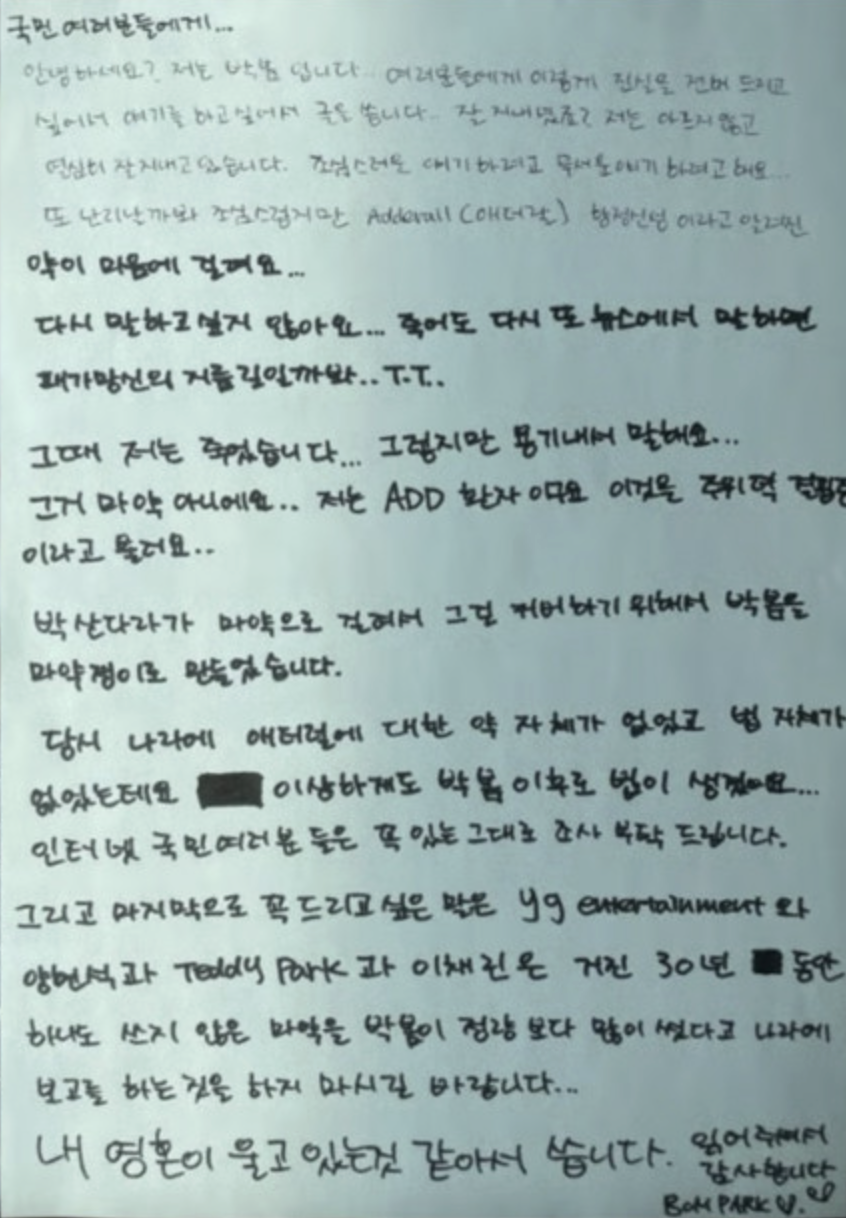 국민 여러분들에게...
안녕하세요? 저는 박봄 입니다... 여러분들에게 이렇게 진실을 전해 드리고
싶어서 얘기를 하고싶어서 글을 씁니다.. 잘 지내셨죠? 저는 아프지 않고
열심히 잘지내고 있습니다. 조심스러운 얘기하려고 무서운얘기 하려고 해요...
또 난리날까봐 조심스럽지만 Adderall (애더럴) 이라고 알려진
약이 마음에 걸려요...
다시 말하고싶지 않아요... 죽어도 다시 또 뉴스에서 말하면
패가망신의 지름길일까봐.. T.T..
그때 저는 죽었습니다... 그렇지만 용기내서 말해요...
그거 마약 아니에요.. 저는 ADD 환자이고요 이것은 주위력 결핍증
이라고 불러요..
박산다라가 마약으로 걸려서 그걸 커버하기 위해서 박봄을
마약쟁이로 만들었습니다.
당시 나라에 애터럴에 대한 약 자체가 없었고 법 자체가
없었는데요 이상하게도 박봄 이후로 법이 생겼어요...
인터넷 국민여러분 들은 꼭 있는그대로 조사 부탁 드립니다.
그리고 마지막으로 꼭 드리고싶은 말은 yg entertainment 와
양현석과 Teddy Park 과 이채린은 거진 30년 동안
하나도 쓰지 않은 마약을 박봄이 정량 보다 많이 썼다고 나라에
보고를 하는것을 하지 마시길 바랍니다...
내 영혼이 울고 있는것 같아서 씁니다. 읽어주셔서
감사합니다
BOM PARK ♡.